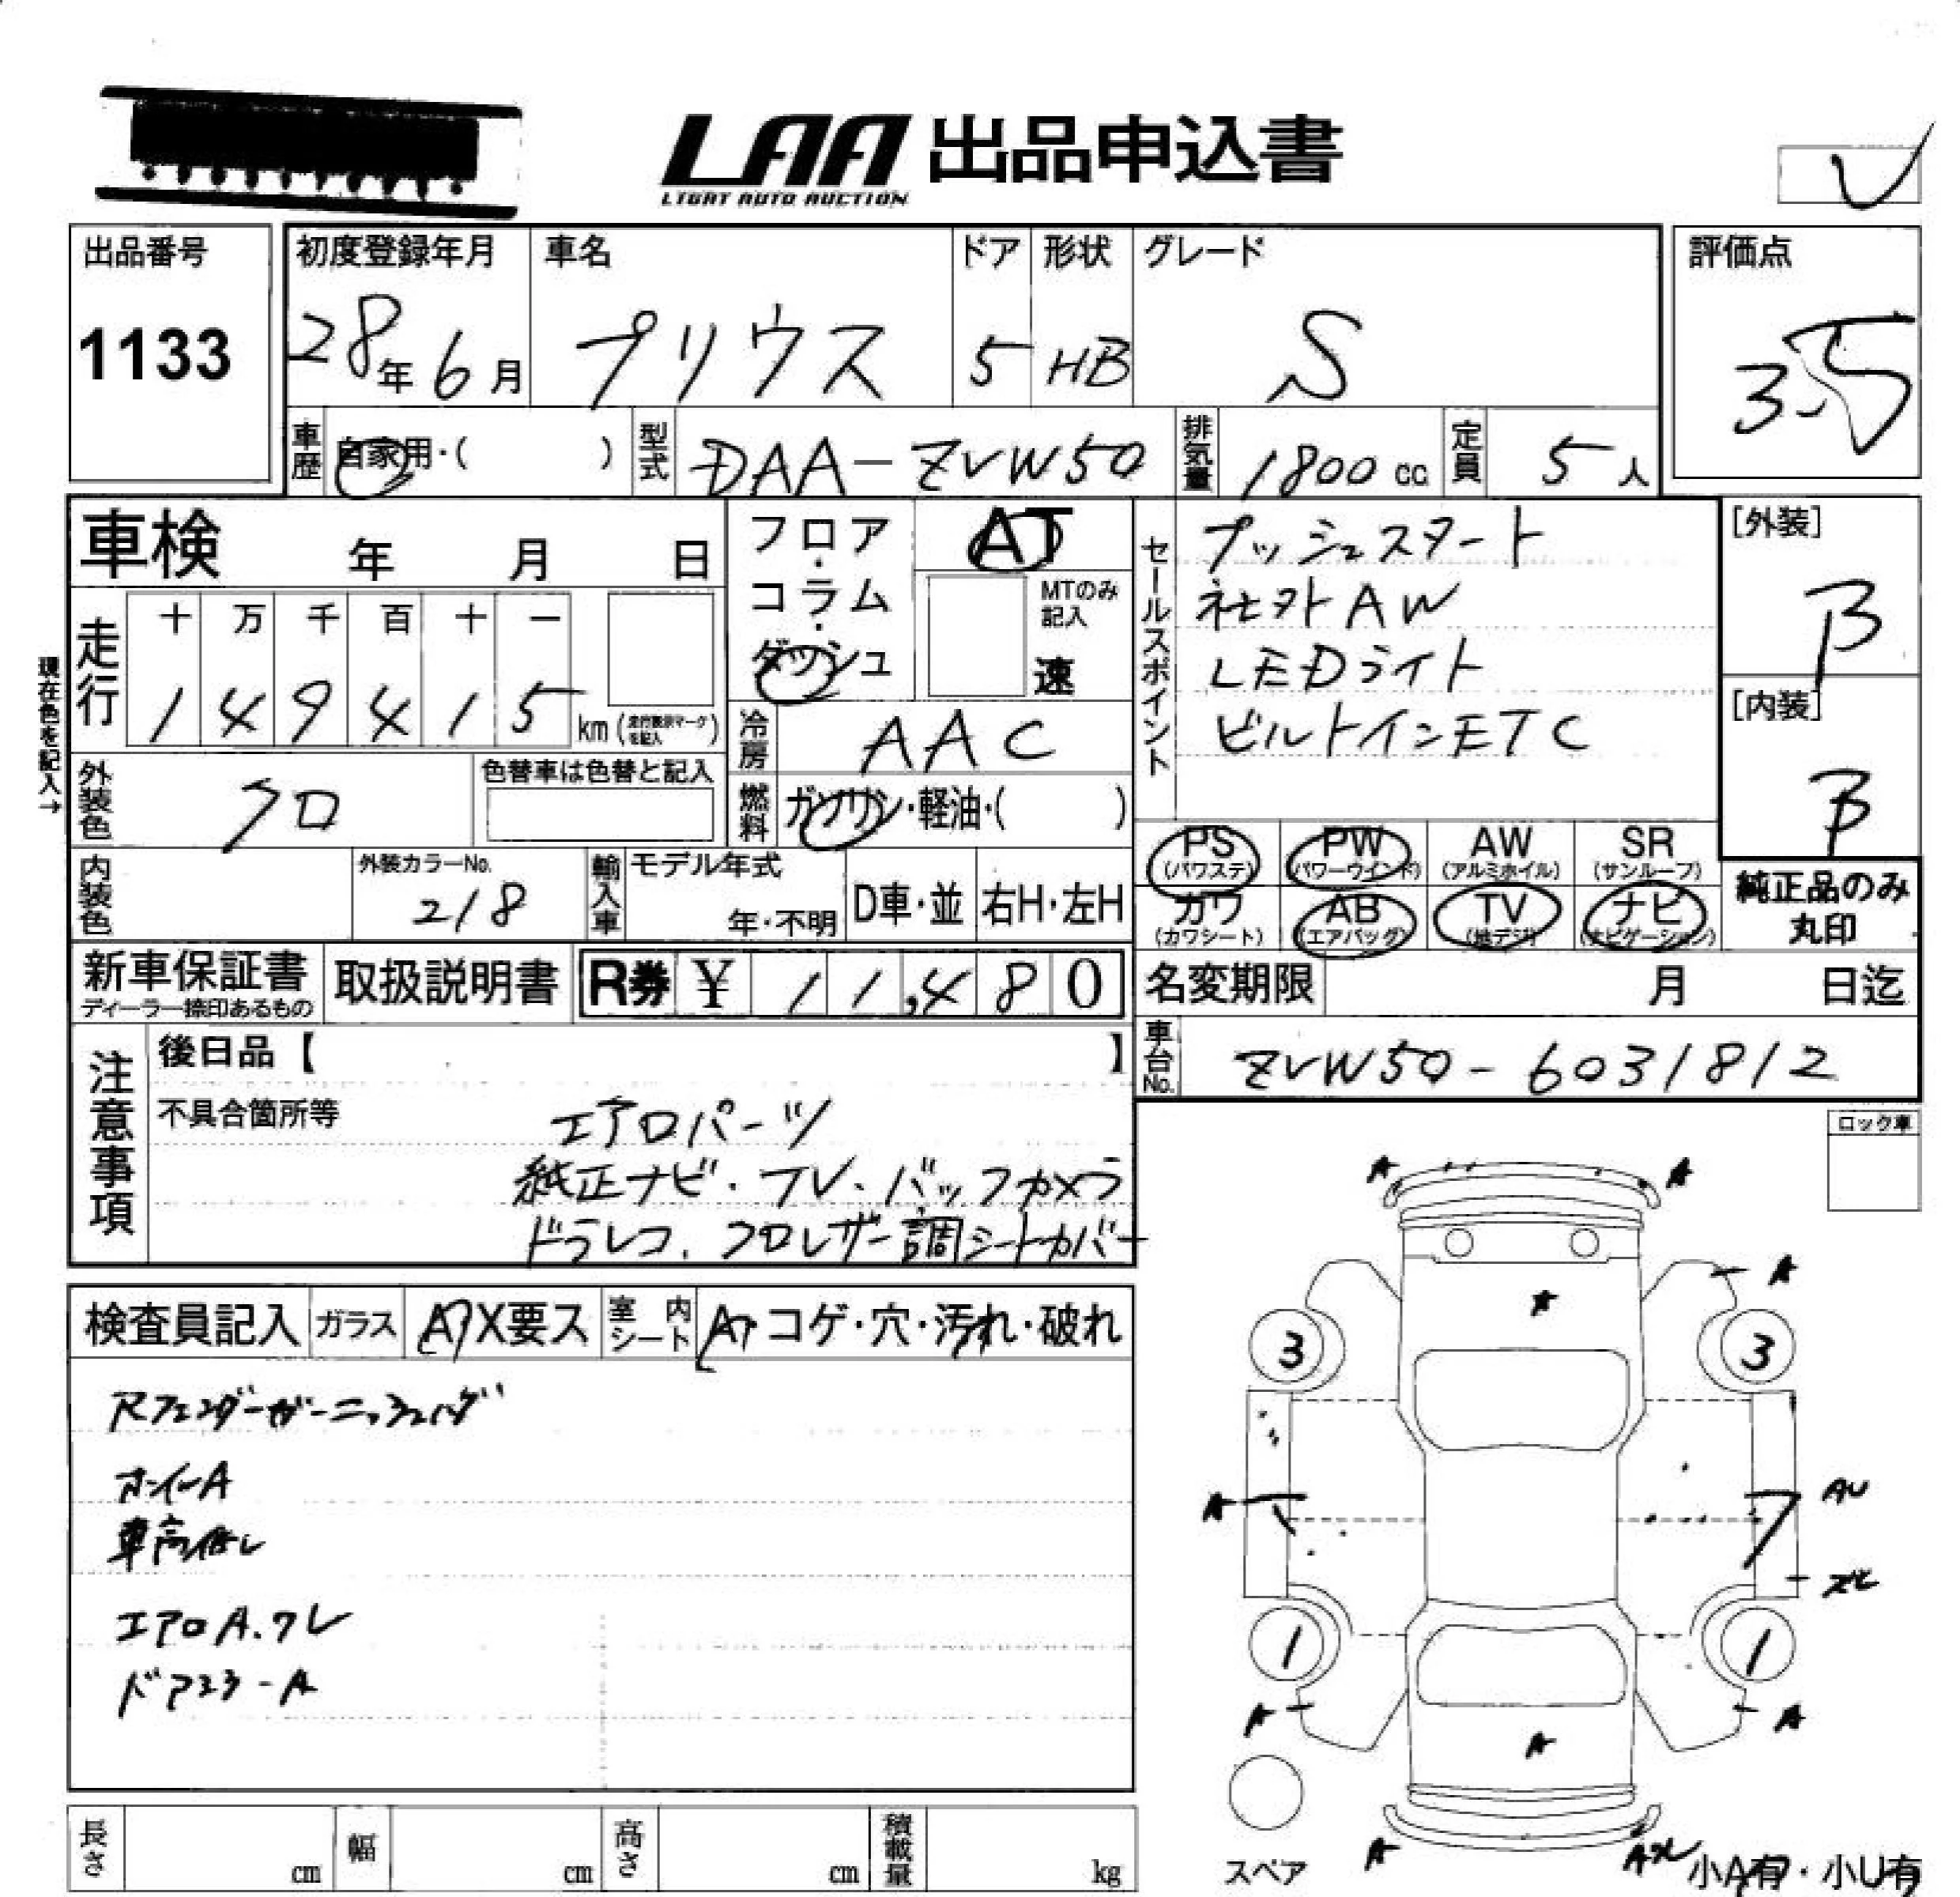 LAA 出品申込書
LIGHT AUTO AUCTION
出品番号 初度登録年月 車名 ドア 形状 グレード 評価点
1133 28年 6月 プリウス 5 HB S 3.5
車歴 自家用・( ) 型式 DAA-ZVW50 排気量 1800 cc 定員 5人
車検 年 月 日
フロア・コラム・ダッシュ
AT
MTのみ記入
速
セールスポイント
プッシュスタート
社外AW
LEDライト
ビルトインETC
[外装]
B
[内装]
B
現在色を記入→
走行 十 万 千 百 十 一
1 4 9 4 1 5 km (走行表示マークを記入)
冷房 AAC
外装色 クロ 色替車は色替と記入
燃料 ガソリン・軽油・( )
PS (パワステ) PW (パワーウインド) AW (アルミホイル) SR (サンルーフ)
カワ (カワシート) AB (エアバッグ) TV (地デジ) ナビ (ナビゲーション)
純正品のみ丸印
内装色 外装カラーNo. 218 輸入車 モデル年式 年・不明 D車・並 右H・左H
新車保証書 ディーラー捺印あるもの 取扱説明書 R券 ¥ 11,480
名変期限 月 日迄
車台No. ZVW50-6031812
注意事項
後日品【 】
不具合箇所等
エアロパーツ
純正ナビ・TV・バックカメラ
ドラレコ、クロレザー調シートカバー
ロック車
検査員記入 ガラス A X要ス 室内シート A コゲ・穴・汚れ・破れ
Rフェンダーガーニッシュハゲ
ホイールA
車高低し
エアロA.ワレ
ドアミラーA
A A
A
A
3 3
A AU
1 1
A A
A
A
スペア
小A有・小U有
長さ cm 幅 cm 高さ cm 積載量 kg